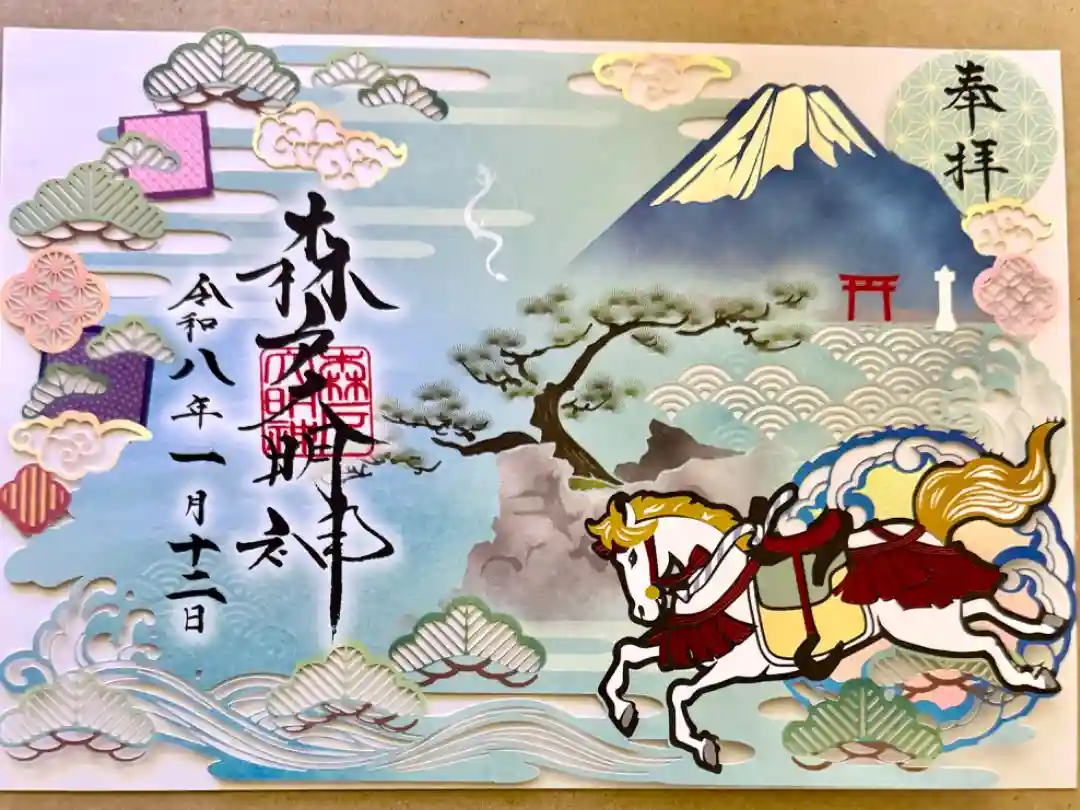 奉拝
森戸大明神
森戸
大明神
令和八年一月十二日